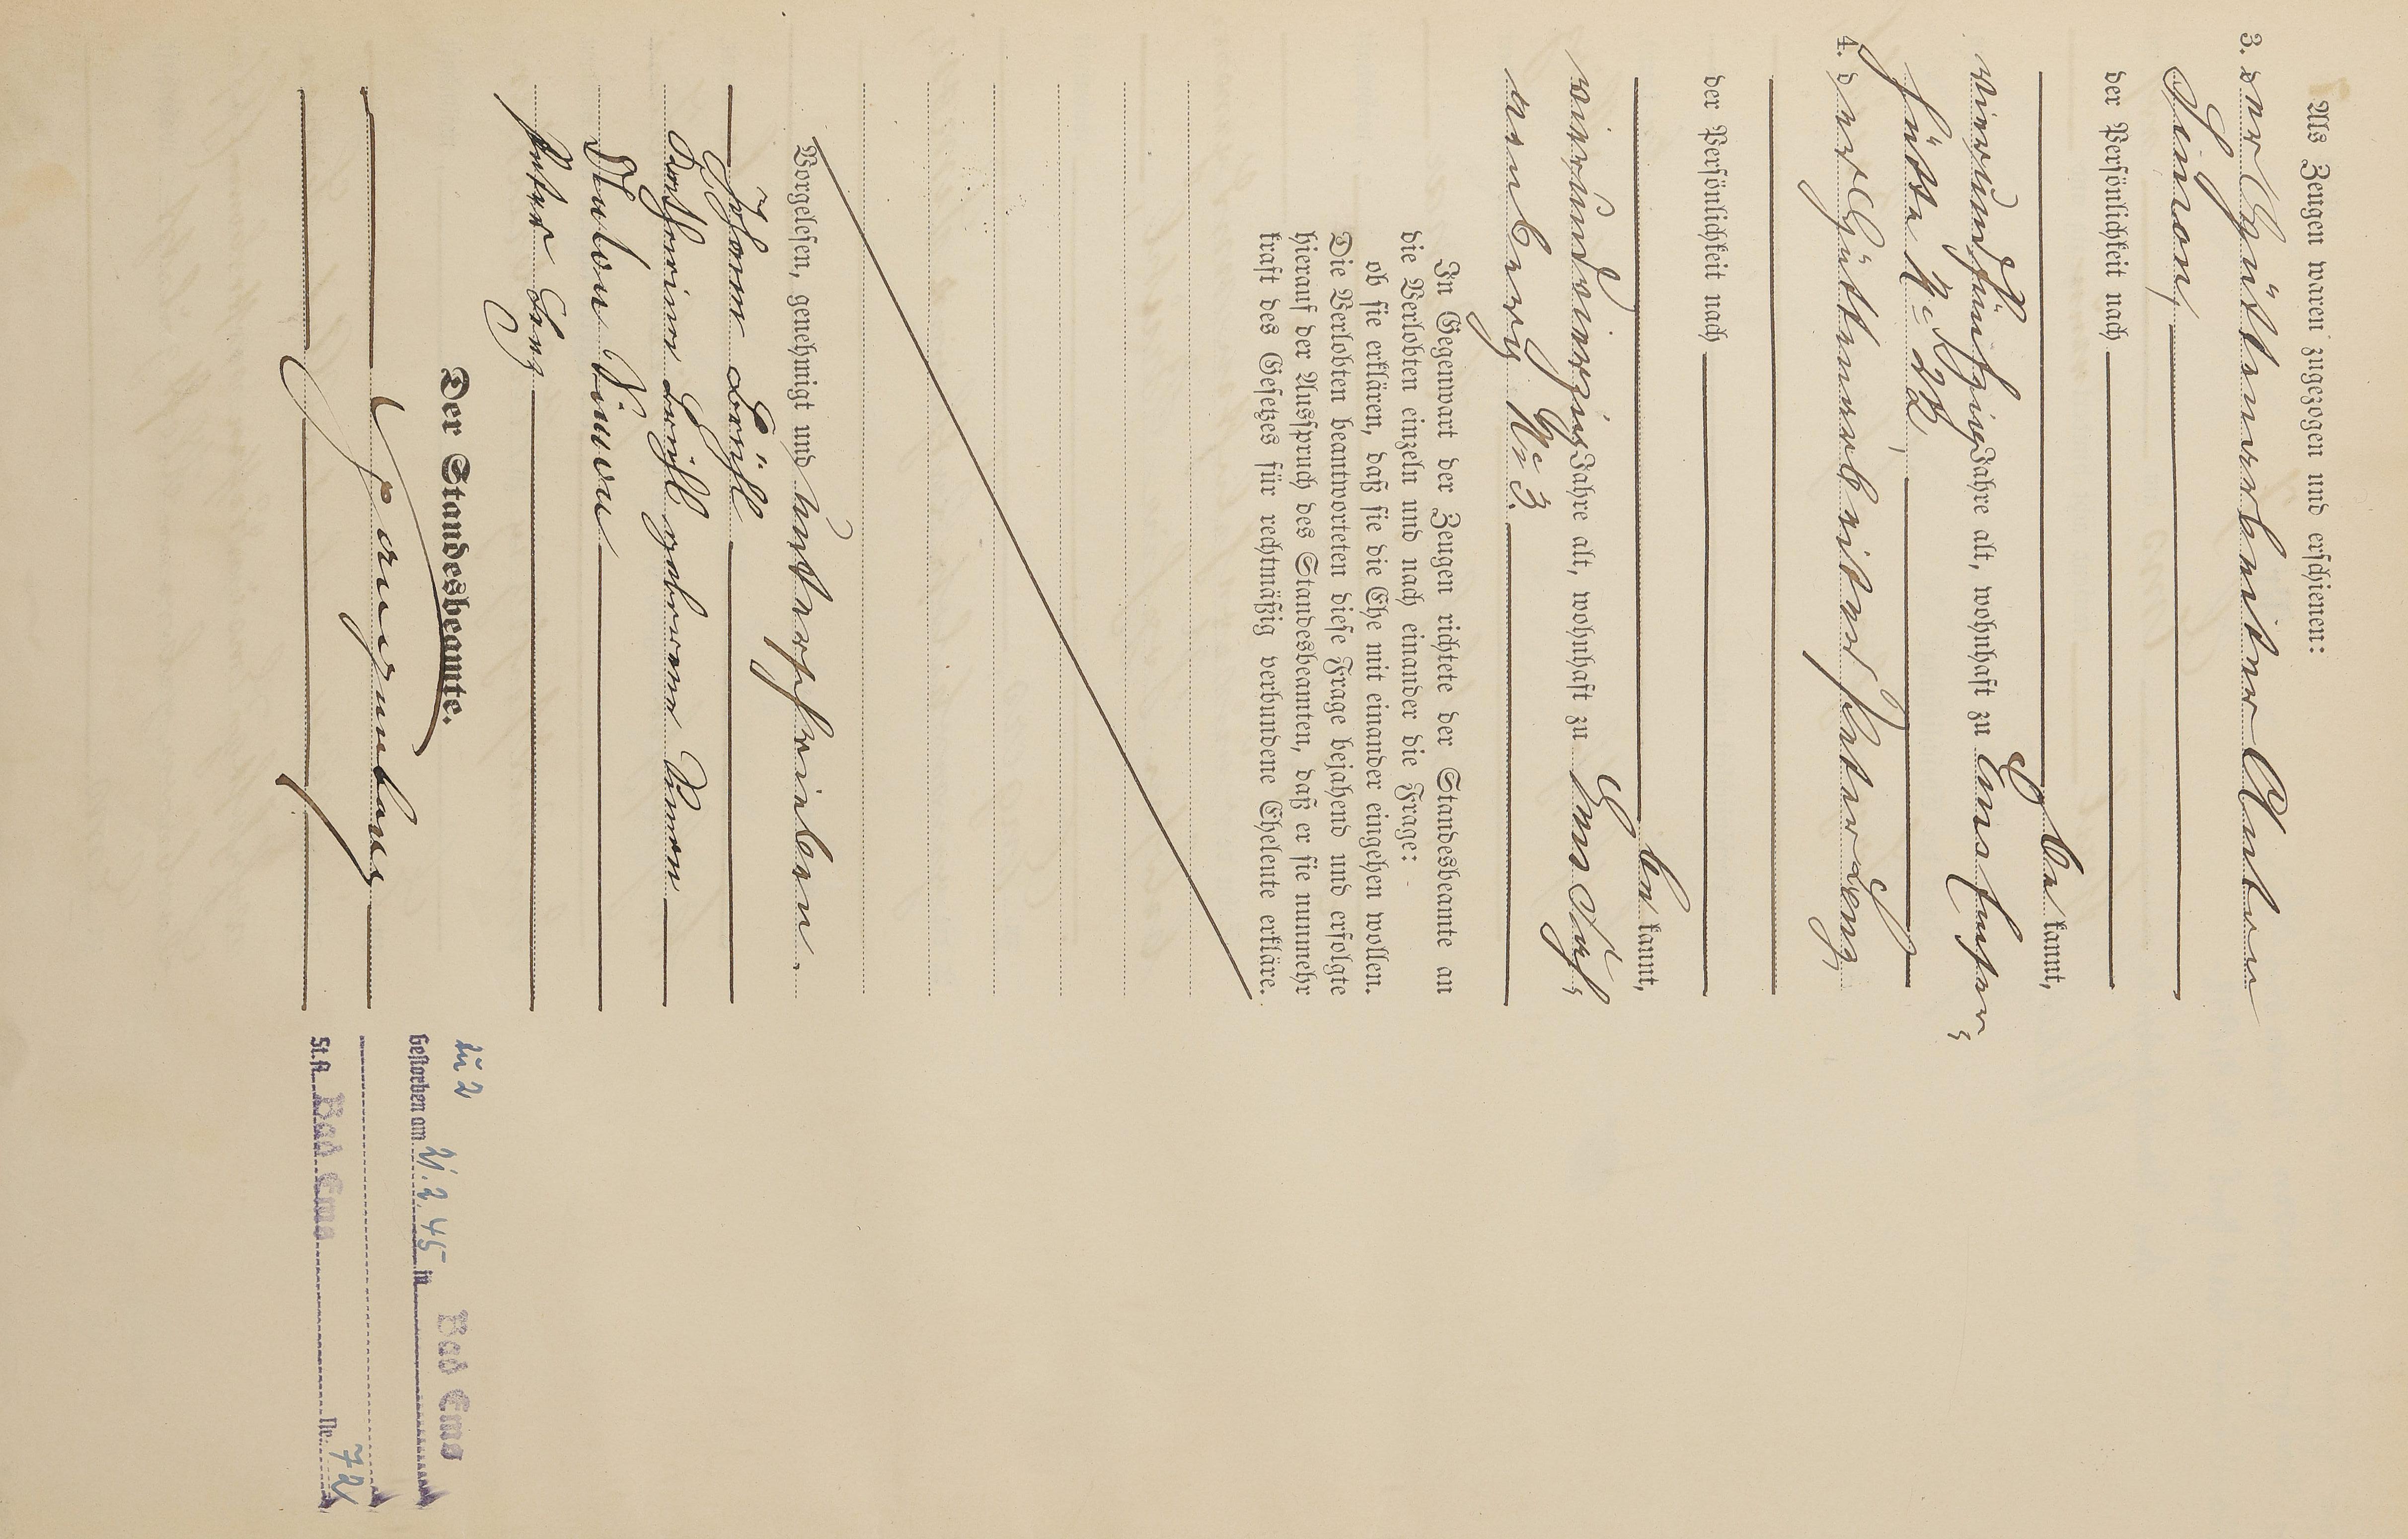 Als Zeugen waren zugezogen und erschienen:
3. der Hüttenarbeiter Anton
Simon,
der Persönlichkeit nach
be kannt,
vierundfünfzig Jahre alt, wohnhaft zu Emserhütte
Hütte No 22,
4. der Hüttenarbeiter Peter
der Persönlichkeit nach
be kannt,
vierundvierzig Jahre alt, wohnhaft zu Ems
No 3.
In Gegenwart der Zeugen richtete der Standesbeamte an
die Verlobten einzeln und nach einander die Frage:
ob sie erklären, daß sie die Ehe mit einander eingehen wollen.
Die Verlobten beantworteten diese Frage bejahend und erfolgte
hierauf der Ausspruch des Standesbeamten, daß er sie nunmehr
kraft des Gesetzes für rechtmäßig verbundene Eheleute erkläre.
Vorgelesen, genehmigt und unterschrieben.
Johann
Katharina geborene Simon
Anton Simon
Peter
Der Standesbeamte.
zu 2
Gestorben am 21.2.45 in Bad Ems
St.A. Bad Ems Nr. 72